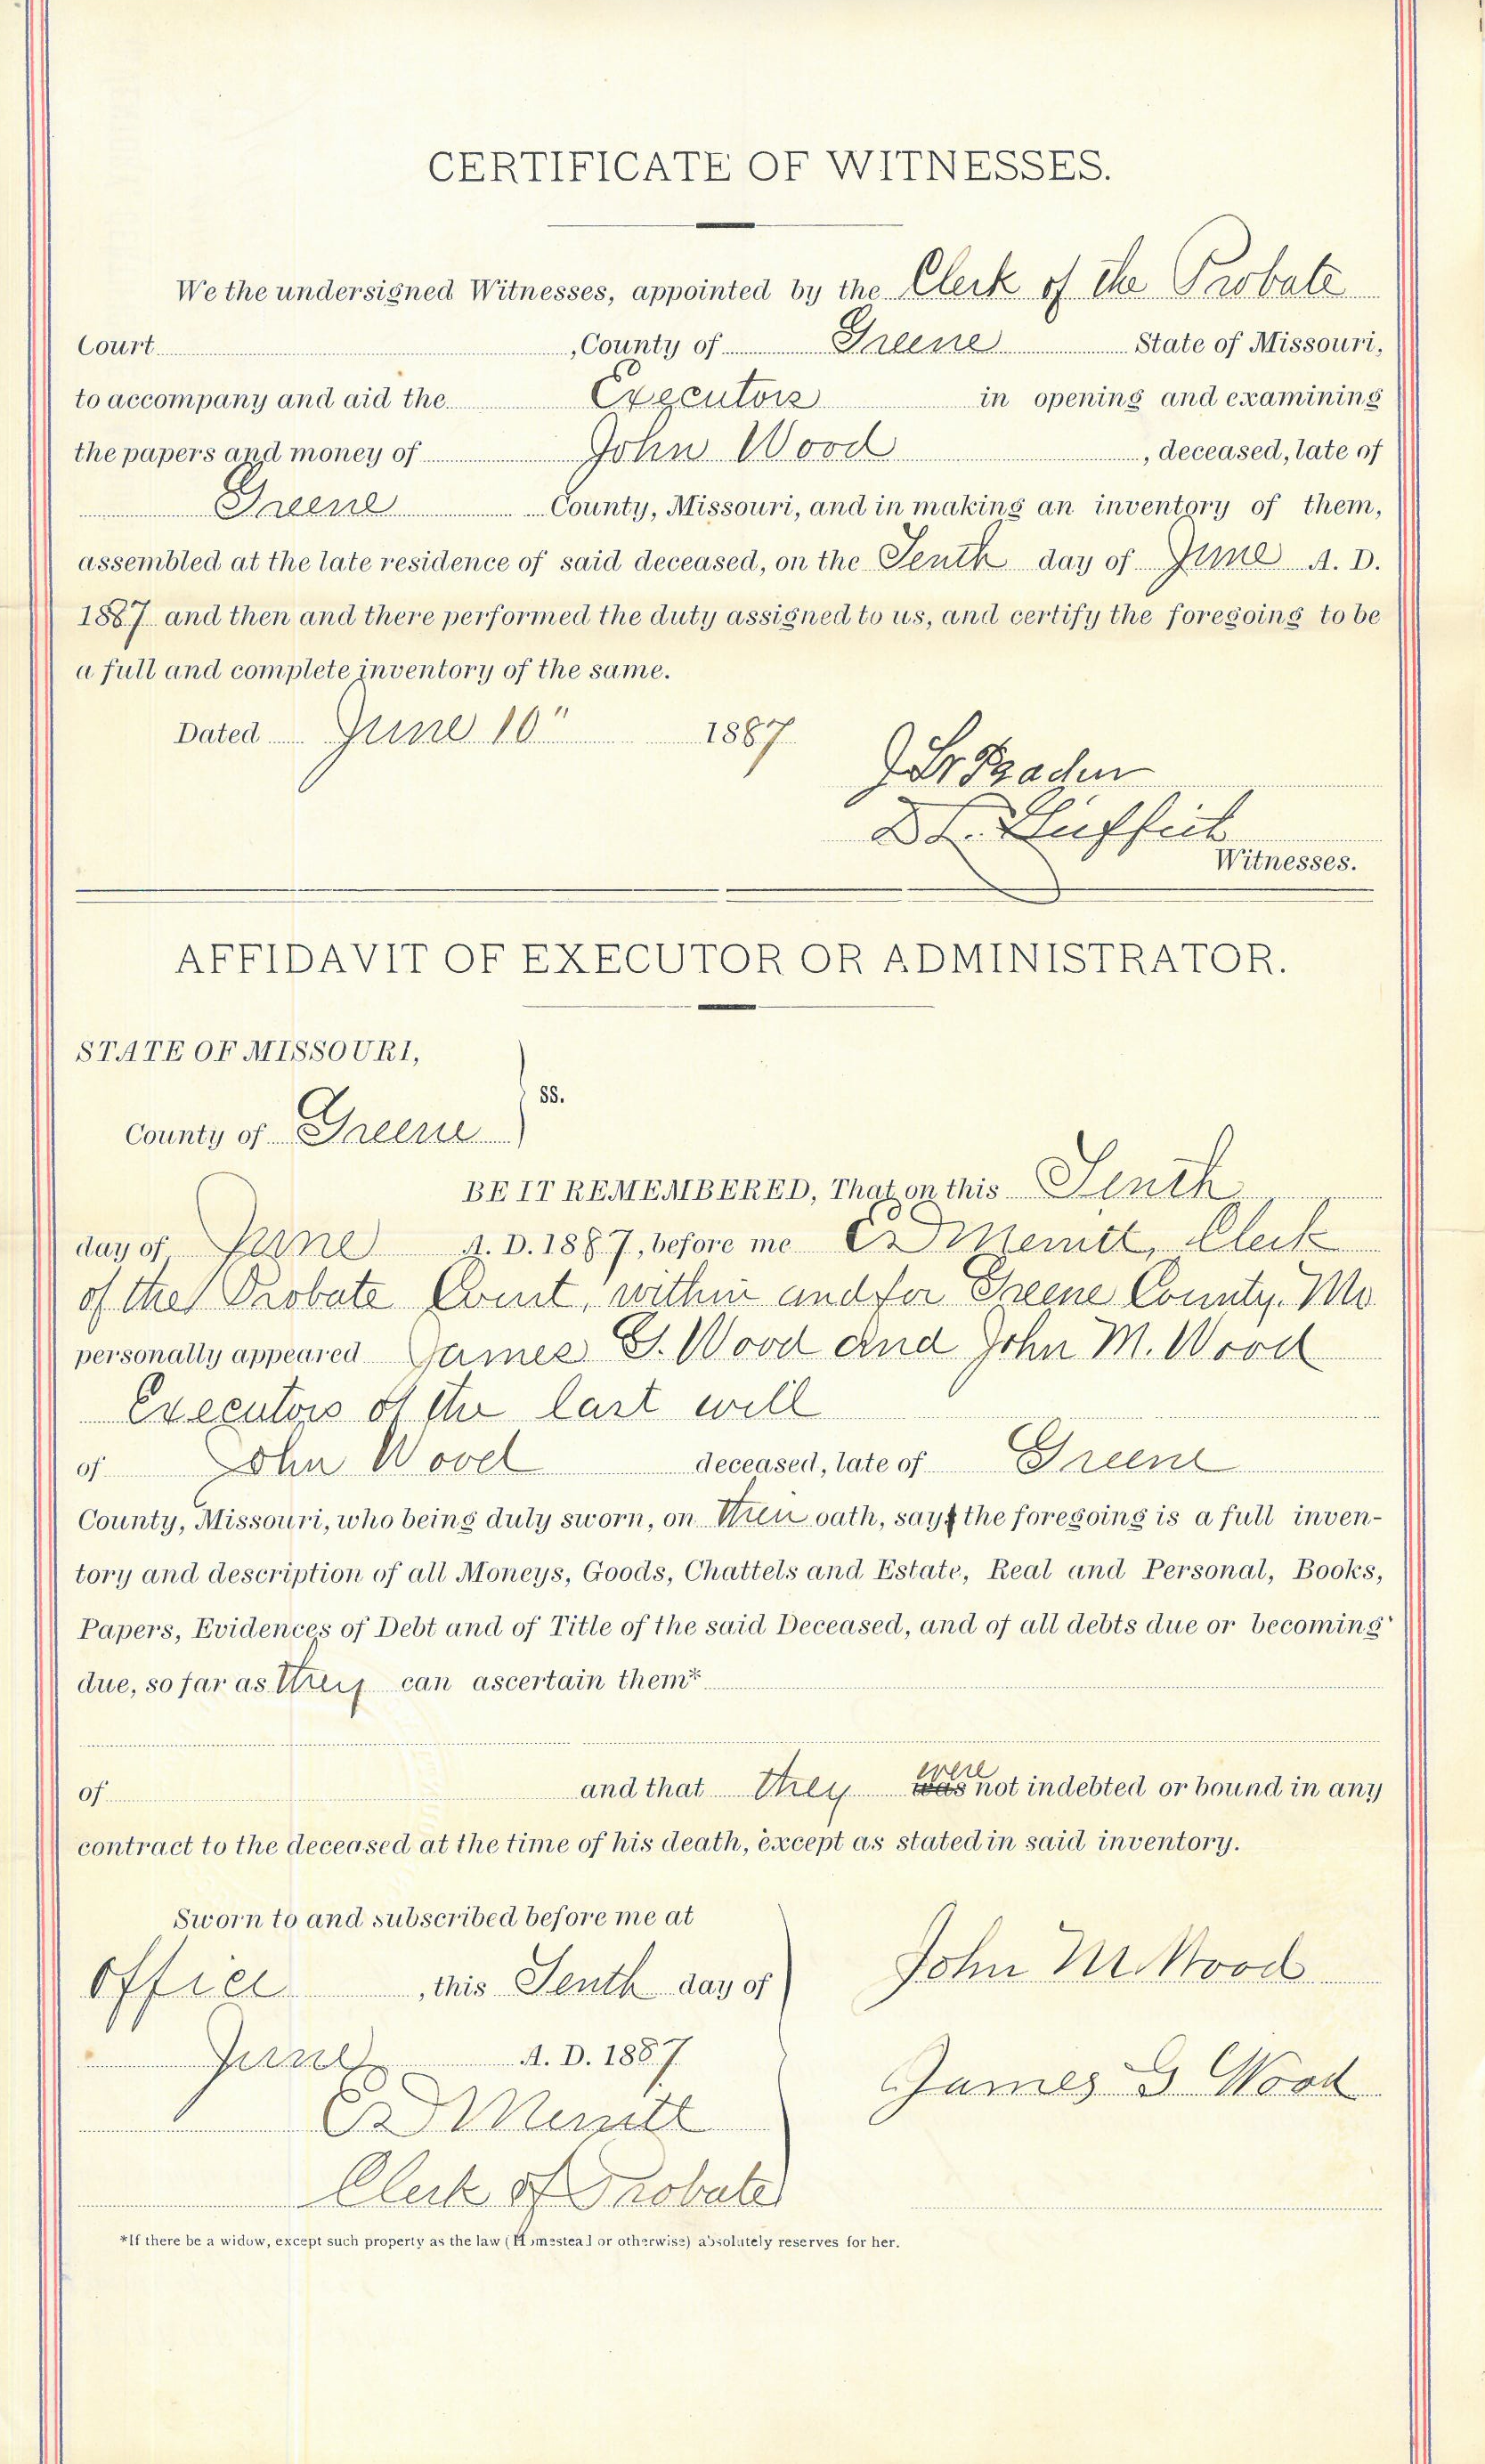 CERTIFICATE OF WITNESSES.
We the undersigned Witnesses, appointed by the Clerk of the Probate
Court , County of Greene State of Missouri,
to accompany and aid the Executors in opening and examining
the papers and money of John Wood , deceased, late of
Greene County, Missouri, and in making an inventory of them,
assembled at the late residence of said deceased, on the Tenth day of June A. D.
1887 and then and there performed the duty assigned to us, and certify the foregoing to be
a full and complete inventory of the same.
Dated June 10" 1887
Witnesses.
AFFIDAVIT OF EXECUTOR OR ADMINISTRATOR.
STATE OF MISSOURI,
ss.
County of Greene
BE IT REMEMBERED, That on this Tenth
day of June A. D. 1887, before me Merritt, Clerk
of the Probate Court, within and for Greene County. Mo
personally appeared James G. Wood and John M. Wood
Executors of the last will
of John Wood deceased, late of Greene
County, Missouri, who being duly sworn, on their oath, say the foregoing is a full inven-
tory and description of all Moneys, Goods, Chattels and Estate, Real and Personal, Books,
Papers, Evidences of Debt and of Title of the said Deceased, and of all debts due or becoming
due, so far as they can ascertain them*
of and that they were was not indebted or bound in any
contract to the deceased at the time of his death, except as stated in said inventory.
Sworn to and subscribed before me at
office , this Tenth day of
June A. D. 1887
Merritt
Clerk of Probate
John M. Wood
James G Wood
*If there be a widow, except such property as the law (Homestead or otherwise) absolutely reserves for her.